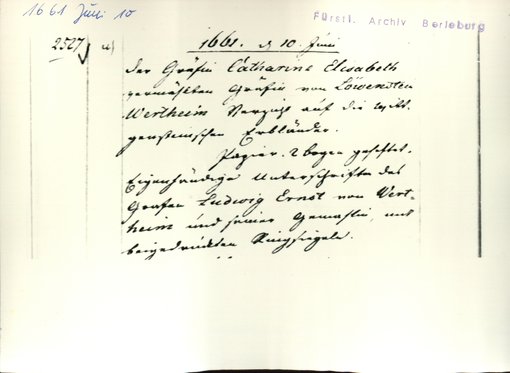 1661 Juni 10
Fürstl. Archiv Berleburg
2527 a) 1661. d 10 Juni
der Gräfin Catharine Elisabeth
vermählten Gräfin von Löwenstein
Wertheim Verzicht auf die witt-
gensteinischen Erbländer.
Papier. 2 bogen geheftet.
Eigenhändige Unterschriften des
Grafen Ludwig Ernst von Wert-
heim und seiner Gemahlin, mit
beigedrückten Ringsiegeln.